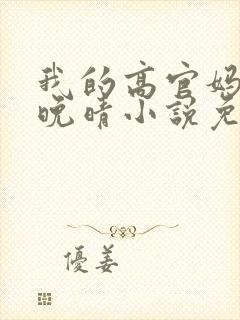 我的高官妈
晚晴小说免
優姜